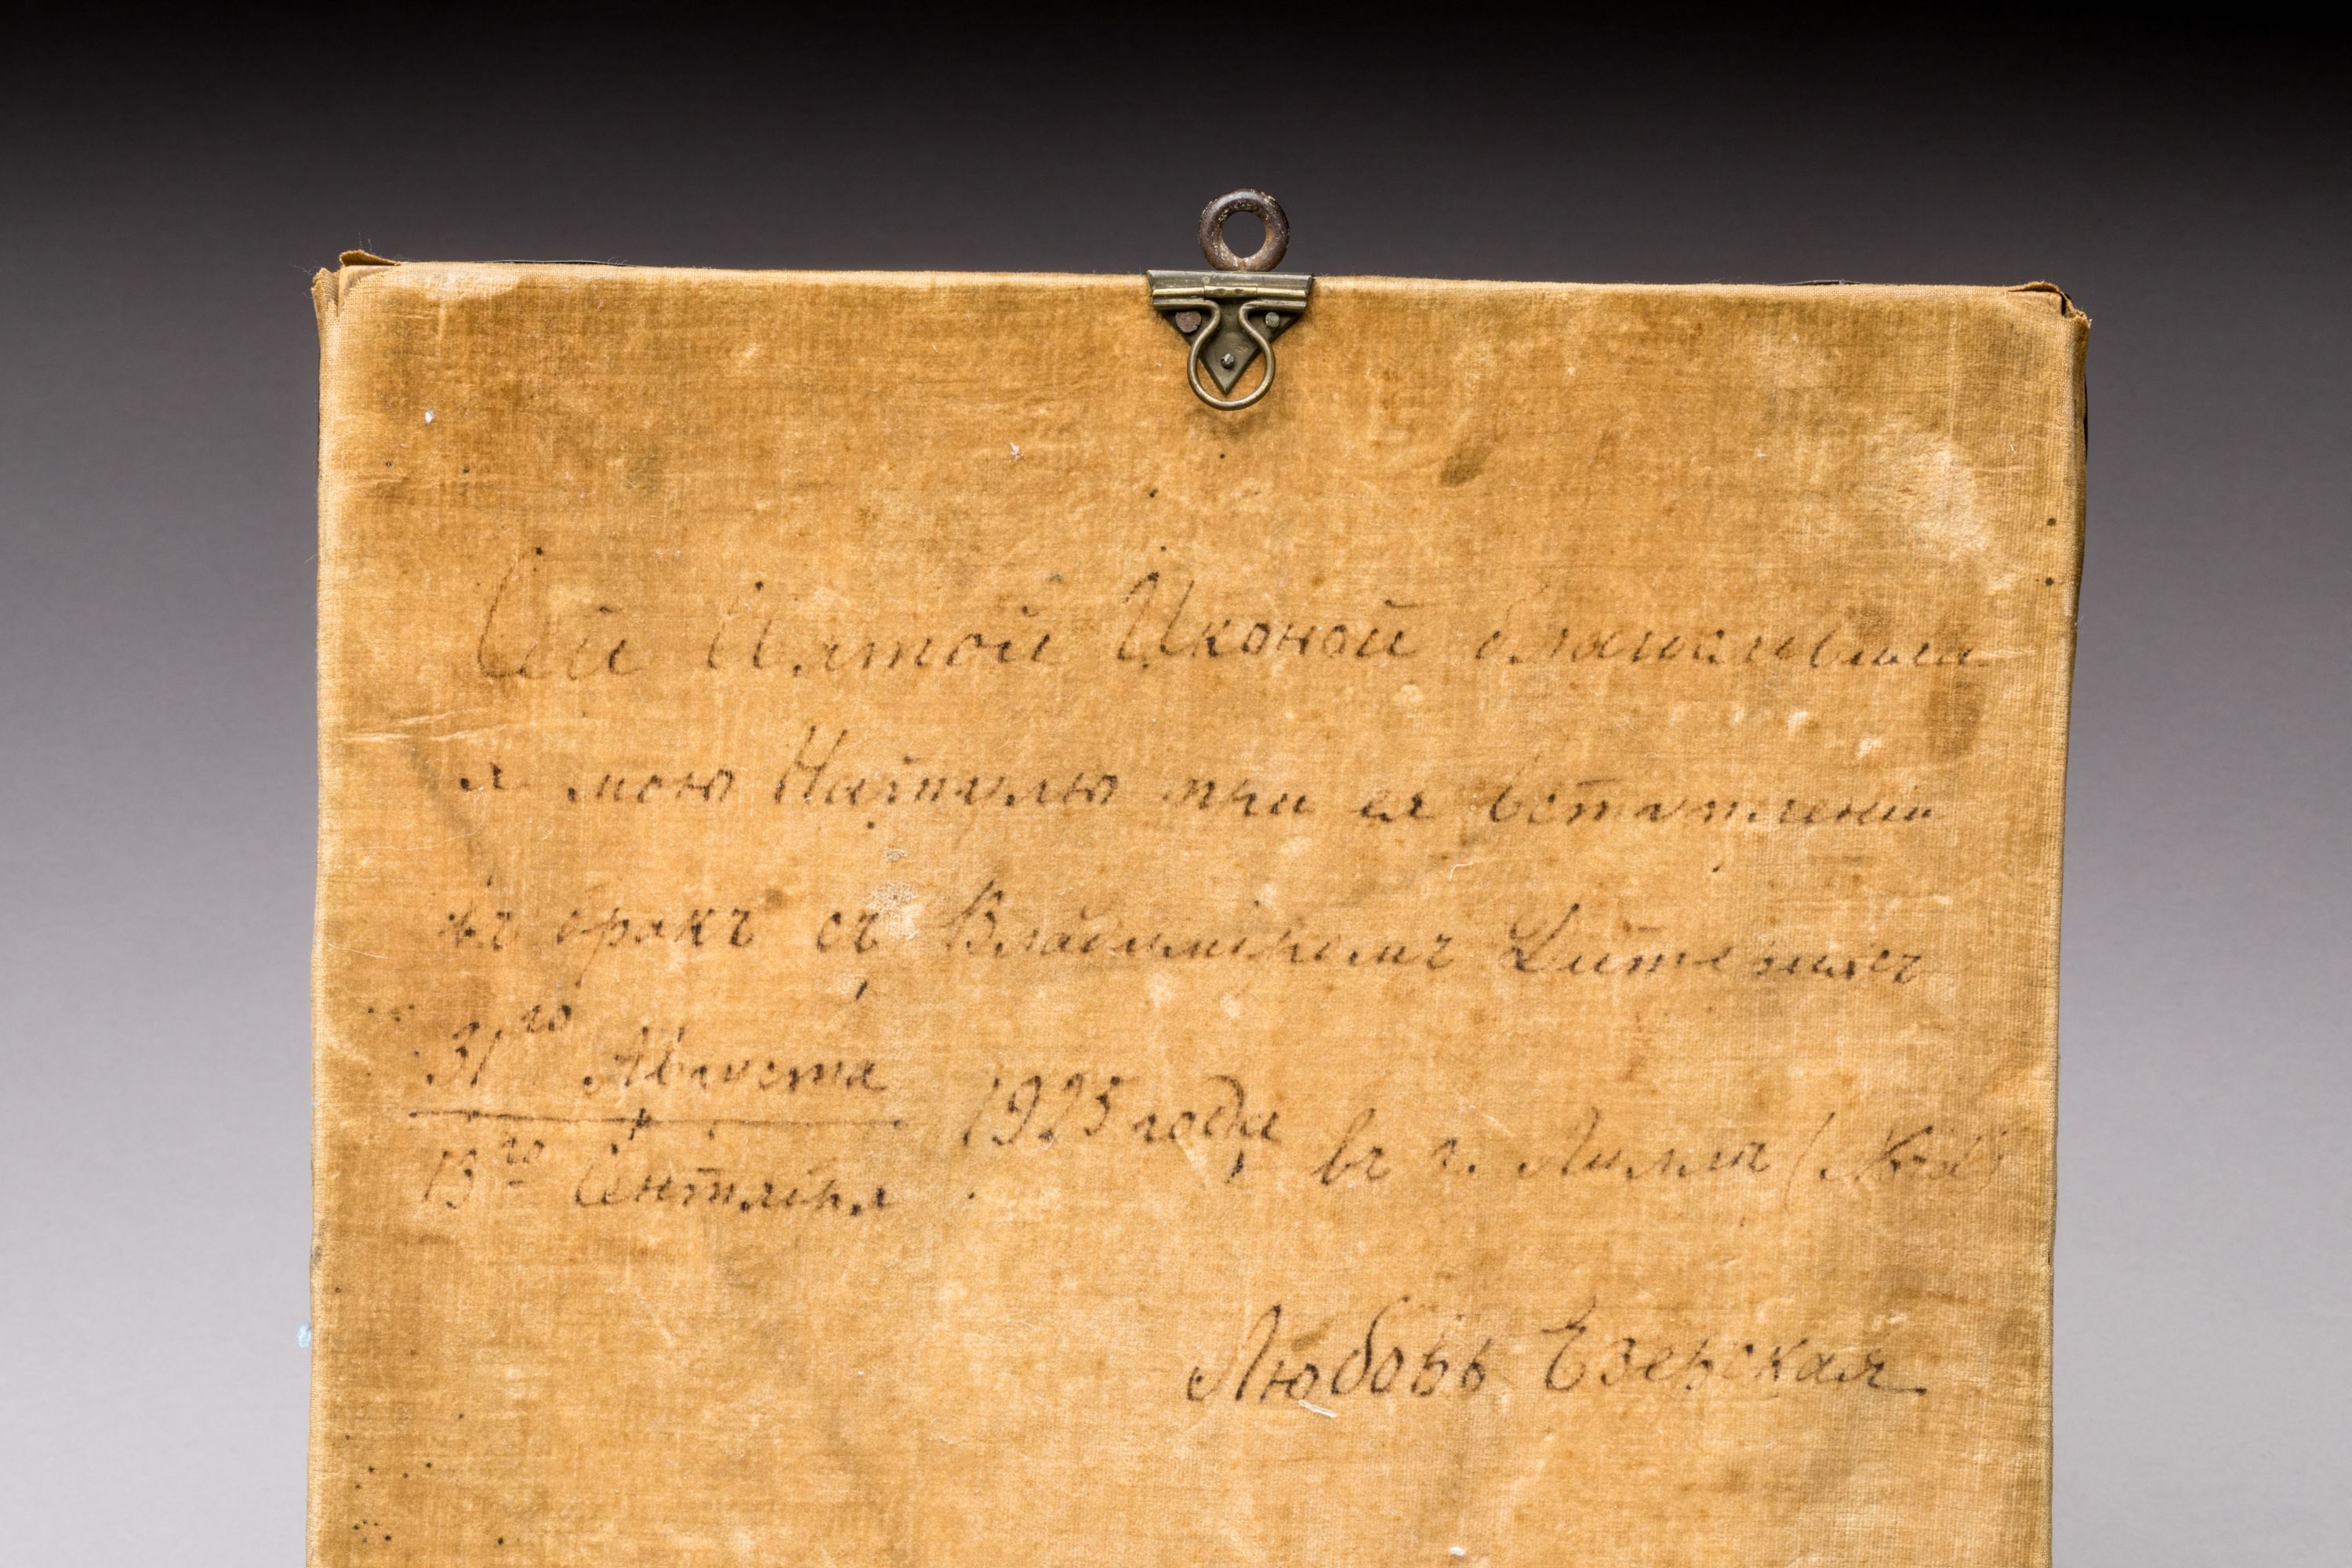 Сей Святой Иконой благословила
я мою Натулю при ея вступленіи
въ бракъ съ Владиміромъ
31го Августа
13го Сентября
1925 года, въ г. Лиллѣ
Любовь Езерская